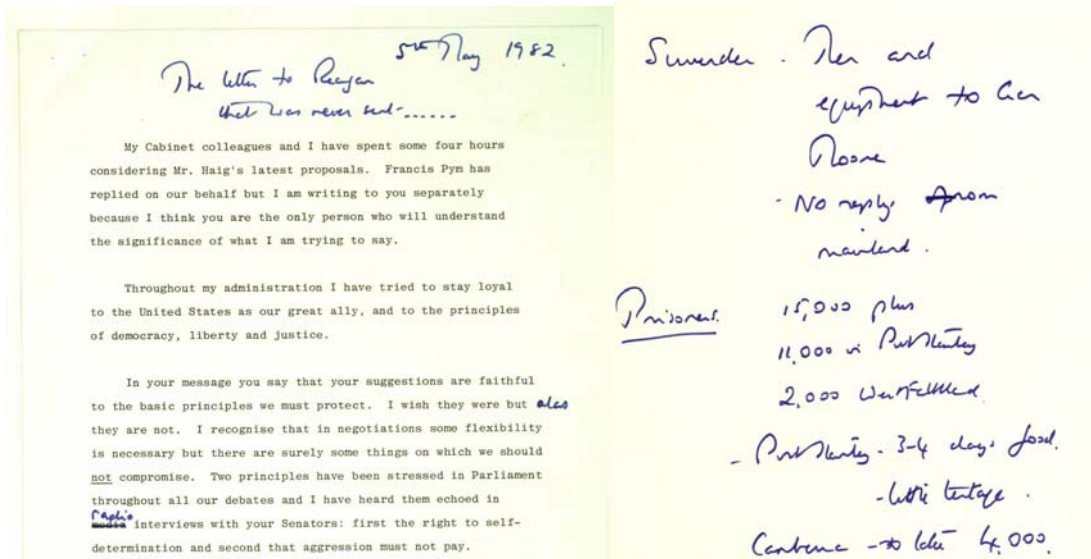 5th May 1982.
The letter to Reagan
that was never sent......
My Cabinet colleagues and I have spent some four hours
considering Mr. Haig's latest proposals. Francis Pym has
replied on our behalf but I am writing to you separately
because I think you are the only person who will understand
the significance of what I am trying to say.
Throughout my administration I have tried to stay loyal
to the United States as our great ally, and to the principles
of democracy, liberty and justice.
In your message you say that your suggestions are faithful
to the basic principles we must protect. I wish they were but alas
they are not. I recognise that in negotiations some flexibility
is necessary but there are surely some things on which we should
not compromise. Two principles have been stressed in Parliament
throughout all our debates and I have heard them echoed in
radio
media interviews with your Senators: first the right to self-
determination and second that aggression must not pay.
Surrender - Men and
equipment to Gen
Moore
- No reply from
mainland.
Prisoners.
15,000 plus
11,000 in Port Stanley
2,000 West Falkland.
- Port Stanley - 3-4 days food.
- little tentage.
Canberra - to take 4,000